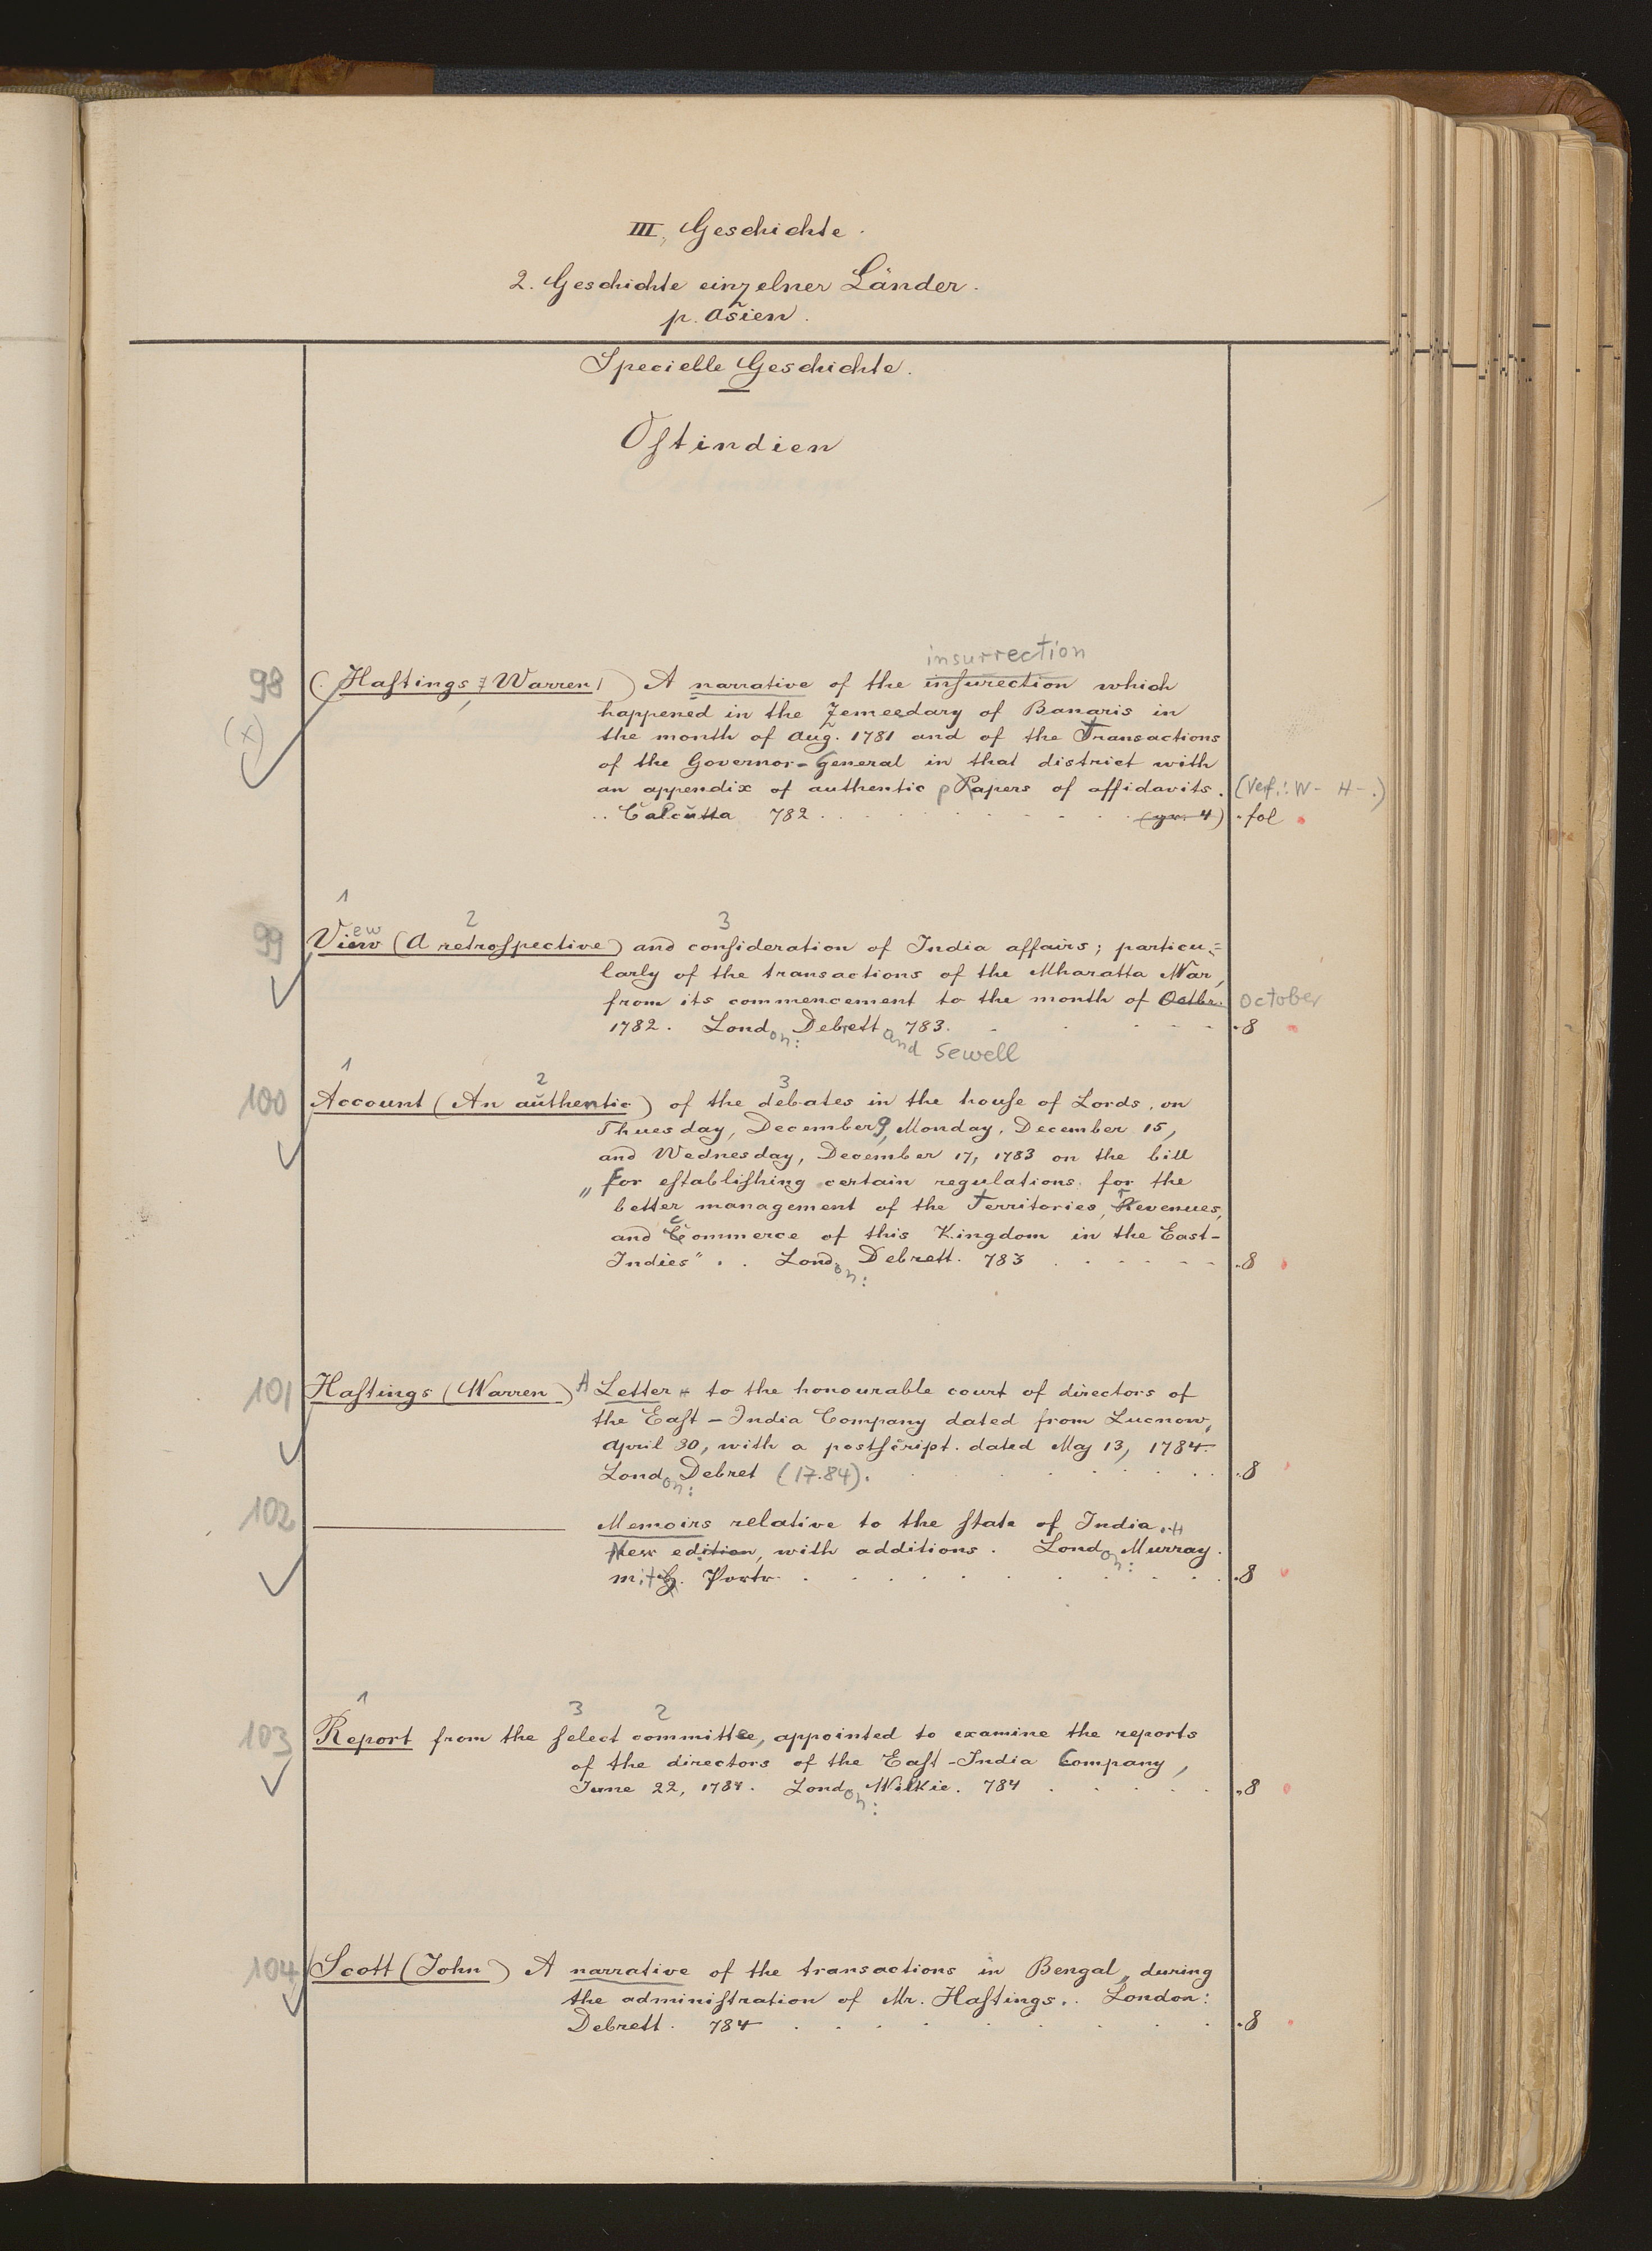 III. Geschichte.
2. Geschichte einzelner Länder.
p. Asien.
Specielle Geschichte.
Ostindien
insurrection
98 (Hastings, Warren) A narrative of the insurection which
happened in the Zemeedary of Banaris in
the month of Aug. 1781 and of the Transactions
of the Governor-General in that district with
an appendix of authentic Papers of affidavits. (Verf.: W- H-.)
Calcutta 782 (gr. 4) fol
1 2 3
99 View (A retrospective) and consideration of India affairs; particu=
larly of the transactions of the Mharatta War,
from its commencement to the month of Octbr. October
1782. London: Debrett and Sewell 783. 8
1 2 3
100 Account (An authentic) of the debates in the house of Lords, on
Thuesday, December 9, Monday, December 15,
and Wednesday, December 17, 1783 on the bill
„for establishing certain regulations for the
better management of the Territories, Revenues,
and Commerce of this Kingdom in the East-
Indies“. London: Debrett. 783 8
101 Hastings (Warren) A Letter to the honourable court of directors of
the East-India Company dated from Lucnow,
April 30, with a postscript. dated May 13, 1784.
London: Debret (17.84). 8
102 ——— Memoirs relative to the state of India.
New edition, with additions. London: Murray.
mit Portr. 8
1 3 2
103 Report from the select committee, appointed to examine the reports
of the directors of the East-India Company,
June 22, 1784. London: Wilkie. 784 8
104 Scott (John) A narrative of the transactions in Bengal, during
the administration of Mr. Hastings. London:
Debrett. 784 8